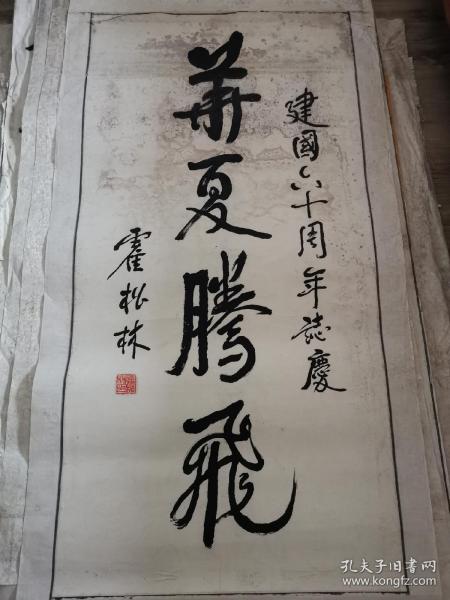 建國六十周年誌慶
華夏騰飛
霍松林
孔夫子旧书网
www.kongfz.com